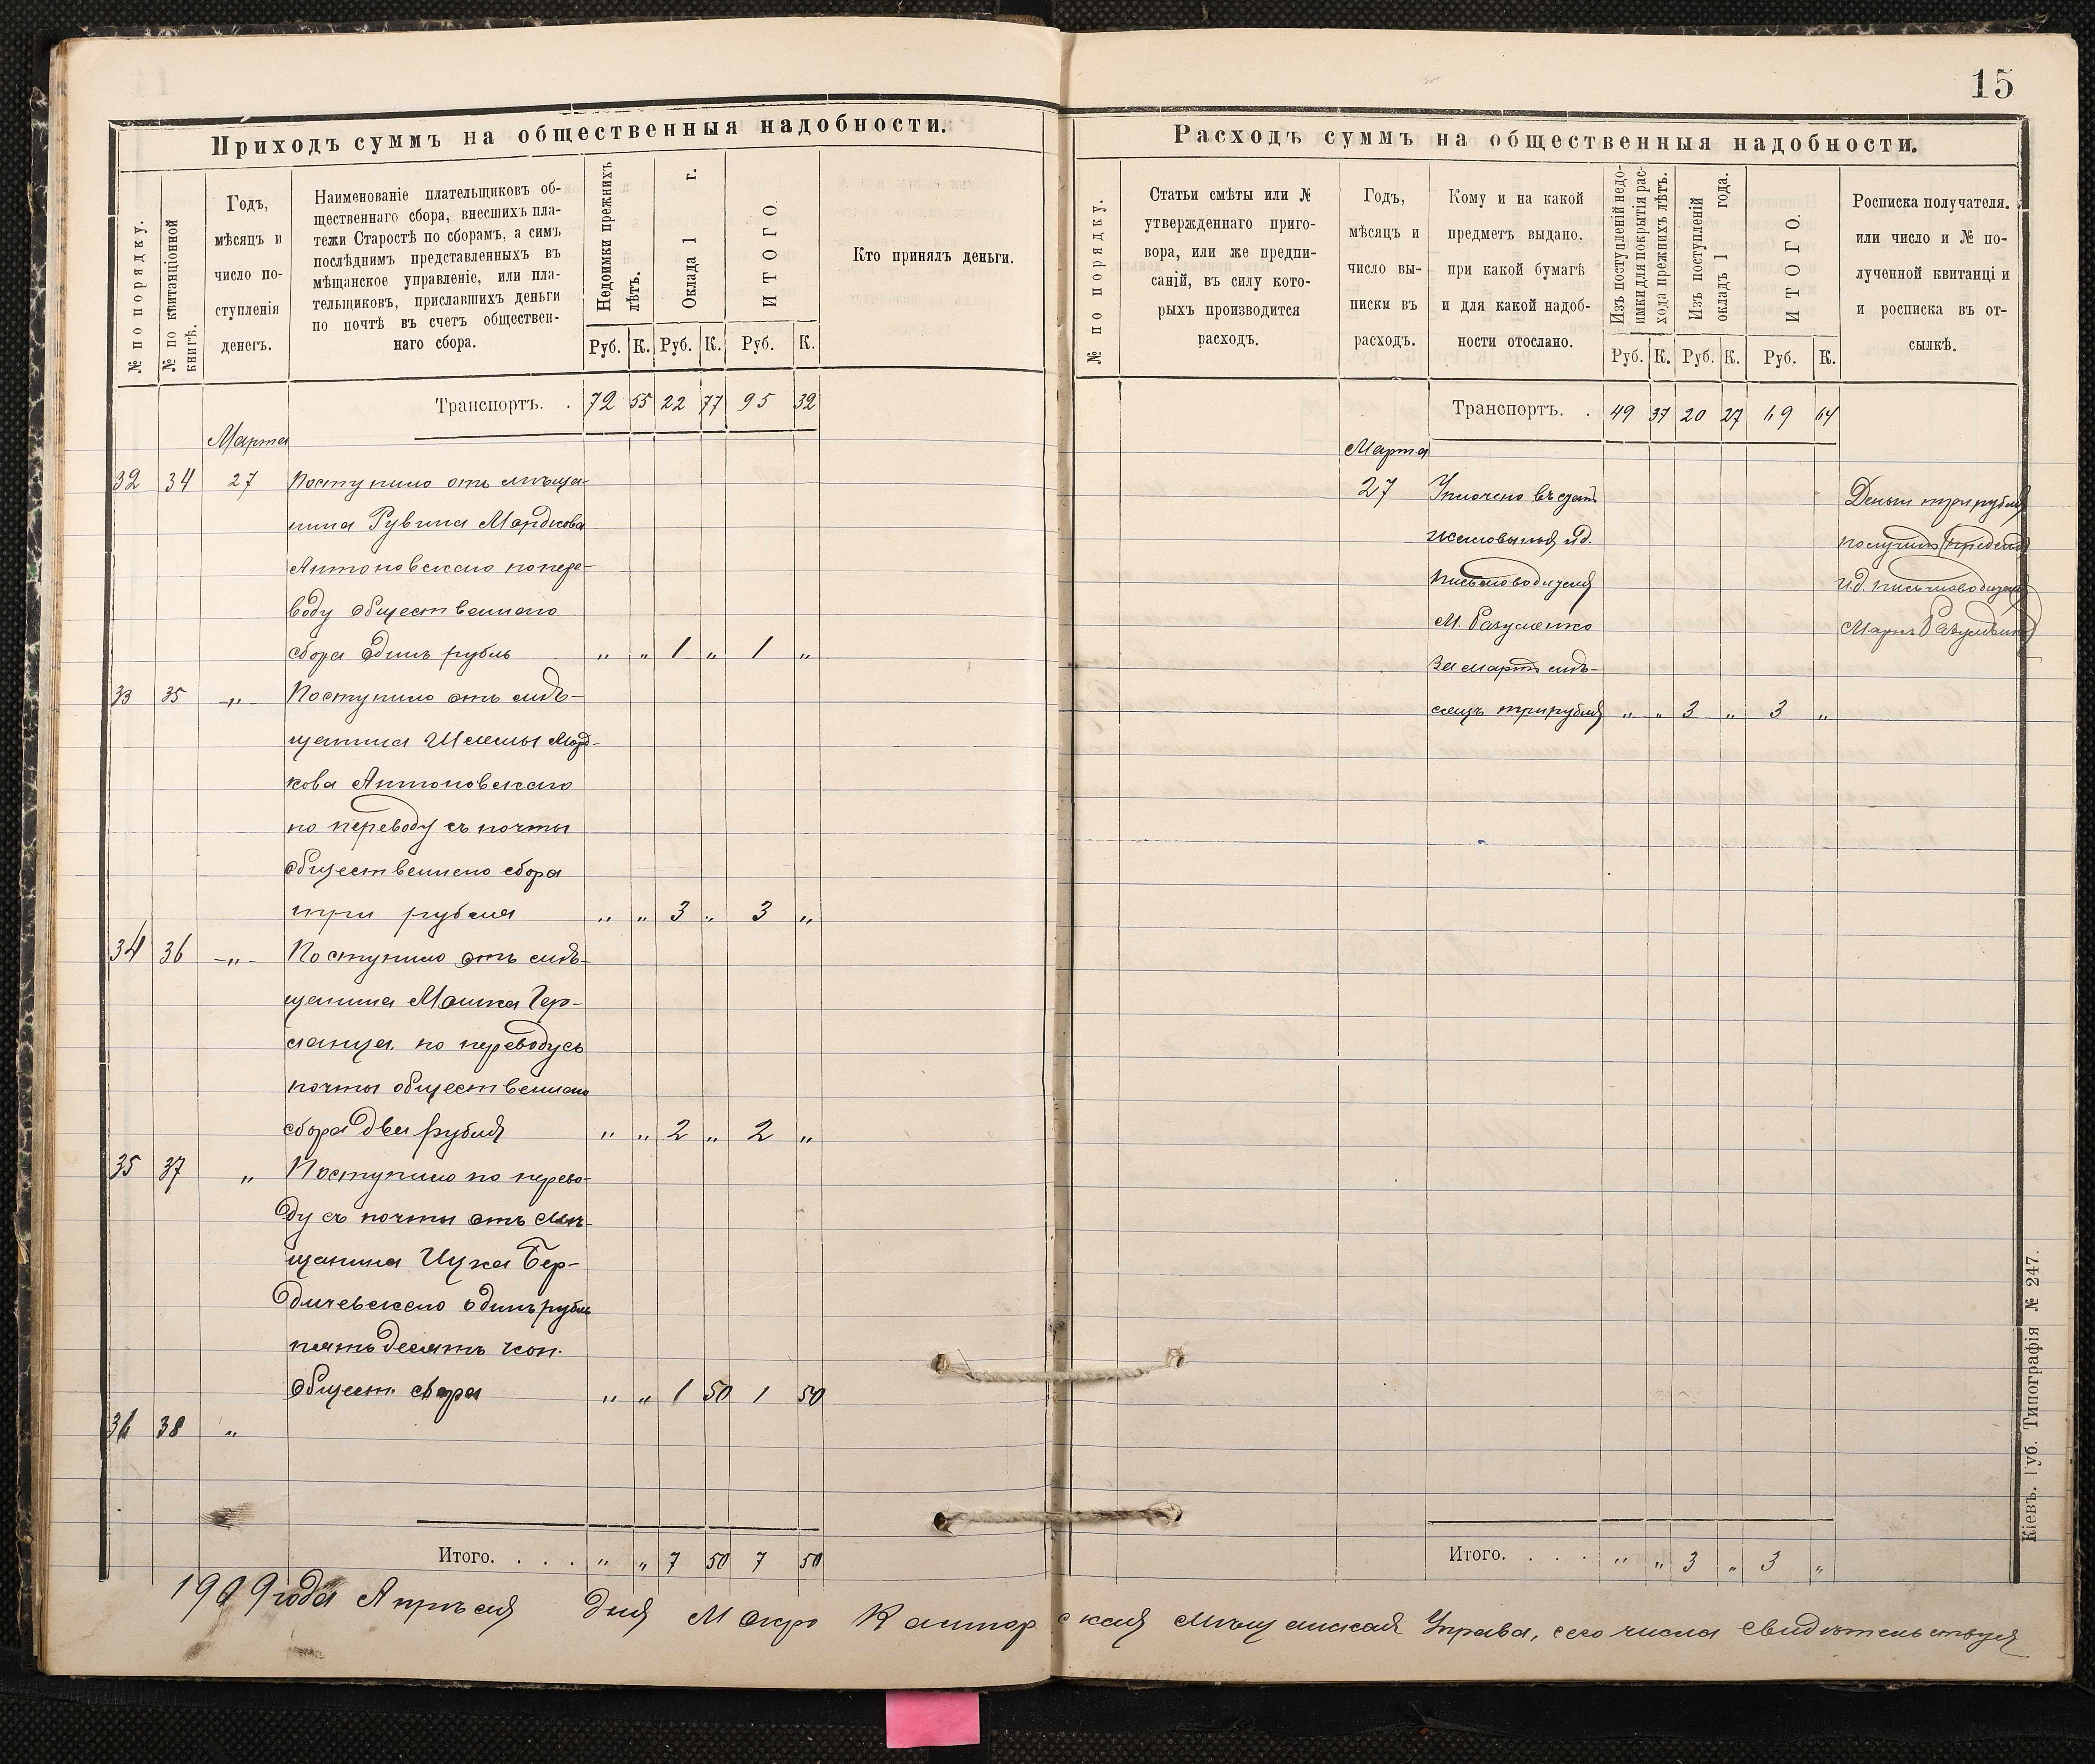 15
Приходъ суммъ на общественныя надобности.
№ по порядку.
№ по квитанціонной книгѣ.
Годъ,
мѣсяцъ и
число по-
ступленія
денегъ.
Наименованіе плательщиковъ об-
щественнаго сбора, внесшихъ пла-
тежи Старостѣ по сборамъ, а симъ
послѣднимъ представленныхъ въ
мѣщанское управленіе, или пла-
тельщиковъ, приславшихъ деньги
по почтѣ въ счетъ обществен-
наго сбора.
Недоимки прежнихъ
лѣтъ.
Оклада 1 г.
ИТОГО.
Кто принялъ деньги.
Руб. К. Руб. К. Руб. К.
Транспортъ. . 72 55 22 77 95 32
Марта
32 34 27 Поступило отъ мѣща-
нина Рувина Мордкова
Антоновскаго по пере-
воду общественнаго
сбора одинъ рубль „ „ 1 „ 1 „
33 35 -„- Поступило отъ мѣ-
щанина Шлемы Морд-
кова Антоновскаго
по переводу съ почты
общественнаго сбора
три рубля „ „ 3 „ 3 „
34 36 -„- Поступило отъ мѣ-
щанина Мошка Гер-
 по переводу съ
почты общественнаго
сбора два рубля „ „ 2 „ 2 „
35 37 „ Поступило по перево-
ду съ почты отъ мѣ-
щанина Ицка Бер-
дичевскаго одинъ рубль
пятьдесятъ коп.
общест. сбора „ „ 1 50 1 50
36 38 „
Итого. . . . „ „ 7 50 7 50
Расходъ суммъ на общественныя надобности.
№ по порядку.
Статьи смѣты или №
утвержденнаго приго-
вора, или же предпи-
саній, въ силу кото-
рыхъ производится
расходъ.
Годъ,
мѣсяцъ и
число вы-
писки въ
расходъ.
Кому и на какой
предметъ выдано,
при какой бумагѣ
и для какой надоб-
ности отослано.
Изъ поступленій недо-
имки для покрытія рас-
хода прежнихъ лѣтъ.
Изъ поступленій
окладъ 1 года.
ИТОГО.
Росписка получателя.
или число и № по-
лученной квитанціи
и росписка въ от-
сылкѣ.
Руб. К. Руб. К. Руб. К.
Транспортъ. . 49 37 20 27 69 64
Марта
27 Уплочено въ счетъ
жалованья и.д.
письмоводителя
М. Разуменко
за мартъ мѣ-
сяцъ три рубля „ „ 3 „ 3 „
Деньги три рубля
получилъ
и.д. письмоводителя
Маркъ Разуменко
Итого. . . . „ „ 3 „ 3 „
Кіевъ. Губ. Типографія № 247.
1909 года Апрѣля дня Мокро Каллигорская мѣщанская Управа, сего числа свидѣтельствуя